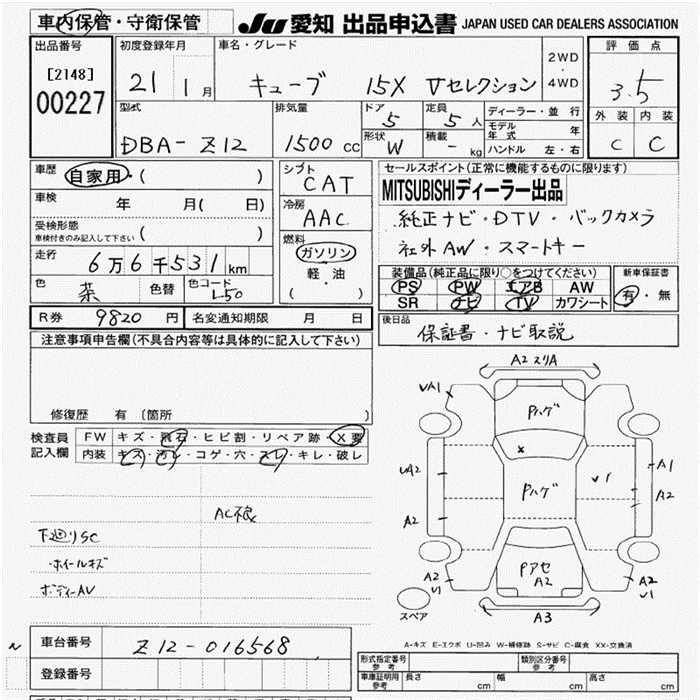 車内保管・守衛保管
JU 愛知 出品申込書 JAPAN USED CAR DEALERS ASSOCIATION
出品番号
[2148]
00227
初度登録年月
21 1 月
車名・グレード
キューブ 15X Vセレクション
2WD
・
4WD
評価点
3.5
外装 内装
C C
型式
DBA-Z12
排気量
1500 cc
ドア
5
定員
5 人
形状
W
積載
- kg
ディーラー・並行
モデル年式 年
ハンドル 左・右
車歴 自家用・( )
車検 年 月( 日)
受検形態
車検付きのみ記入して下さい ( )
走行 6万6千531km
色 茶 色替 色コード L50
シフト
CAT
冷房
AAC
燃料
ガソリン
軽・油
( )
セールスポイント(正常に機能するものに限ります)
MITSUBISHIディーラー出品
純正ナビ・DTV・バックカメラ
社外AW・スマートキー
装備品(純正品に限り○をつけてください)
PS PW エアB AW
SR ナビ TV カワシート
新車保証書
有・無
R券 9820 円 名変通知期限 月 日
後日品
保証書・ナビ取説
注意事項申告欄(不具合内容等は具体的に記入して下さい)
修復歴 有 (箇所 )
検査員記入欄
FW キズ・飛石・ヒビ割・リペア跡・X要
内装 キズ・汚レ・コゲ・穴・スレ・キレ・破レ
AC不良
下廻りSC
ホイールキズ
ボディーAV
A2 スリA
UA1
Pハゲ
x
UA2
Pハゲ
A1
A2
A2
Pアセ
A2
A2
U1
A2
U1
A3
スペア
A-キズ E-エクボ U-凹み W-補修跡 S-サビ C-腐食 XX-交換済
車台番号 Z12-016568
登録番号
形式指定番号
参考
類別区分番号
参考
車庫証明用
参考
長さ cm 幅 cm 高さ cm